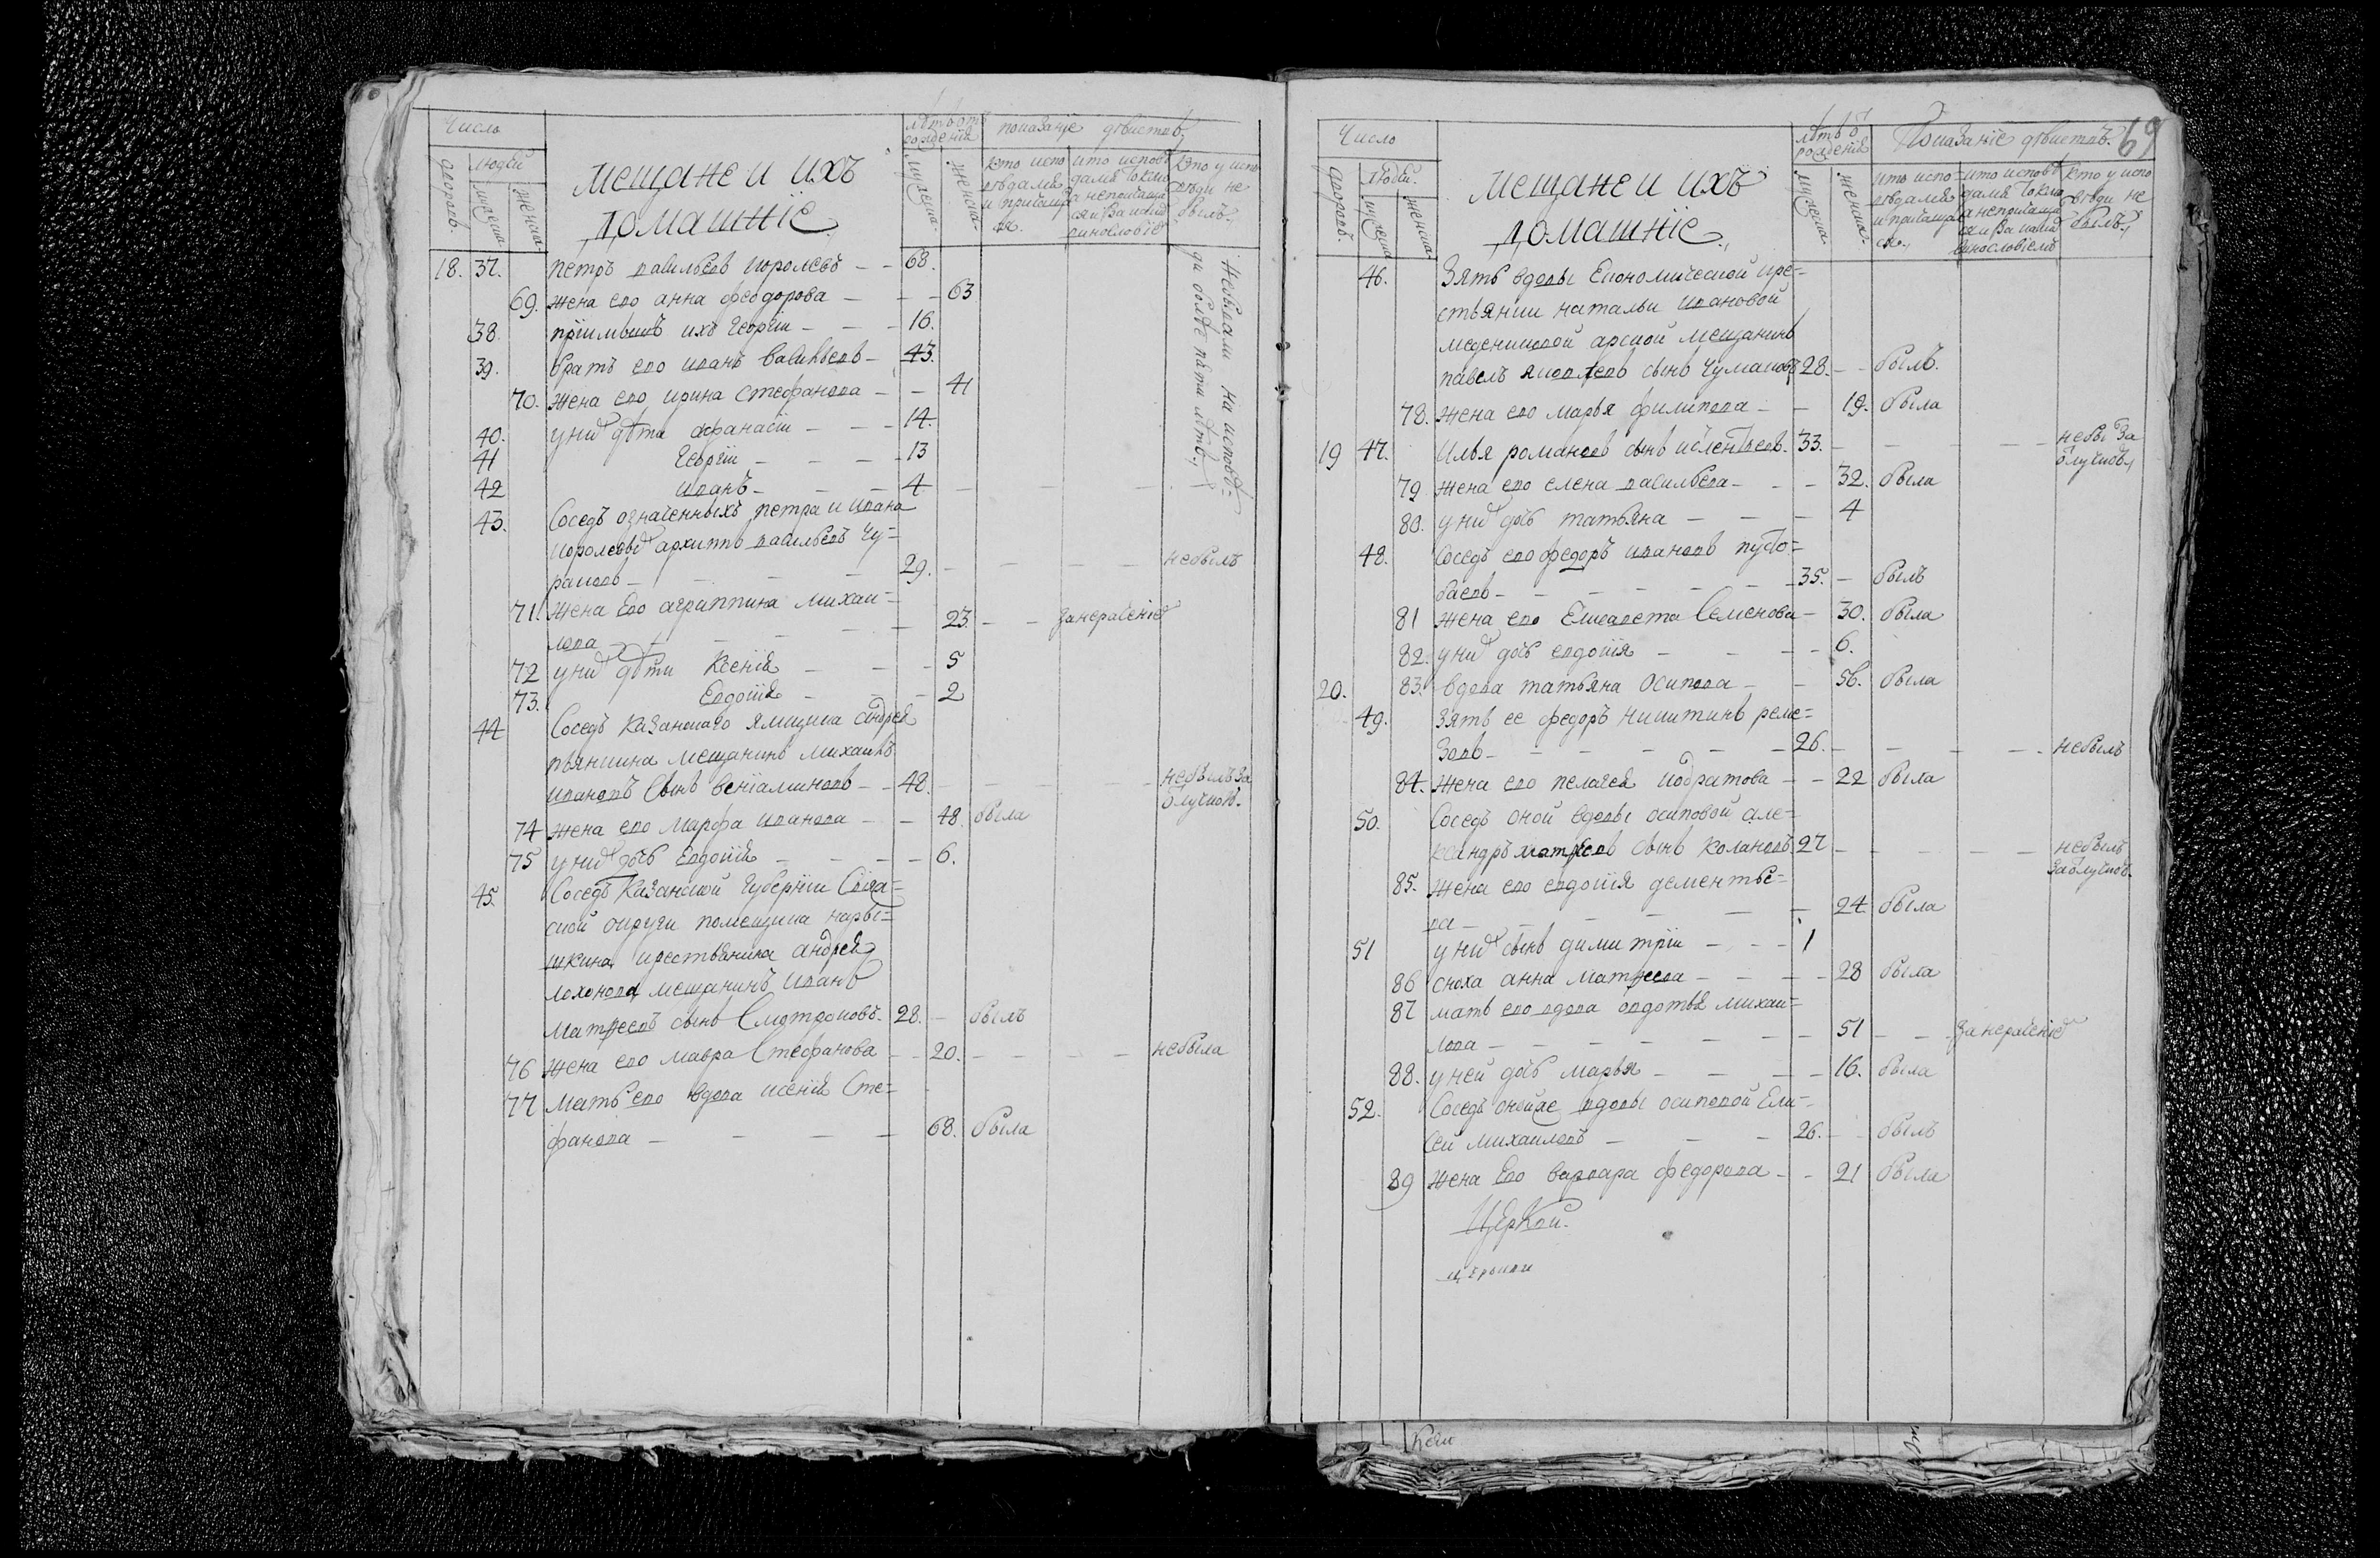 Число
лѣтъ отъ рожденія
показаніе дѣйствъ
дворовъ
людей
мужеска
женска
мещане и ихъ
домашніе
мужеска
женска
кто испо вѣдался и причащался
кто исповѣдался токмо а непричащался и за каким винословіемъ
Кто у исповѣди не былъ
18. 37. петръ васильевъ королевъ – – 68.
69. жена ево анна феодорова – – – 63
38 пріимышъ ихъ Георгіи – – – 16.
39. братъ ево иванъ васильевъ – 43.
70. жена ево ирина стефанова – – 41
40. у нихъ дѣти афанасіи – – – 14.
41 Георгіи – – – – 13
42 иванъ – – – – 4
небывали на исповѣ=
ди болѣе пяти лѣтъ
43. Соседъ означенныхъ петра и ивана
королевыхъ архиппъ васильевъ Чу=
раковъ – – – – 29. – – – – небылъ
71. жена Ево агриппина михаи=
лова – – – – 23. – – занерачениемъ
72 у нихъ дѣти Ксенія – – – 5
73. Евдокія – – – 2
44 Соседъ Казанскаго ямщика андрея
пьянкина мещанинъ михаила
ивановъ сынъ веніаминовъ – – 48. – – – – небылъ за
отлучкой.
74 жена ево Марфа иванова – – 48. была
75 у нихъ дочь Евдокія – – – – 6.
45. Соседъ Казанской Губерніи Свіяж=
ской округи помещика нары=
шкина крестьянина андрея
лохонова мещанинъ иванъ
матвеевъ сынъ Смотраковъ. 28. – былъ
76 жена ево мавра Стефанова – – 20. – – – – небыла
77 Мать ево вдова ксенія Сте=
фанова – – – – 68. была
69
Число
лѣтъ отъ рожденія
Показаніе дѣйствъ
дворовъ.
людей.
мужеска
женска
мещане и ихъ
домашніе
мужеска
женска
кто исповѣдался и причащался
кто исповѣдался токмо а непричащался и за каким винословіемъ
Кто у исповѣди не былъ
46. Зять вдовы Економической кре=
стьянки натальи ивановой
мещанинъ
павелъ яковлевъ сынъ чумаковъ 28. – – былъ.
78. жена ево марья филипова – – 19. была
19 47. Илья романовъ сынъ 33. – – – – небы за
отлучкой
79 жена ево елена васильева – – – 32. была
80. у нихъ дочь татьяна – – – 4
48. Соседъ ево федоръ ивановъ пусто=
баевъ – – – – – – 35. – былъ
81 жена ево Елисавета Семенова – 30. была
82. у нихъ дочь евдокія – – – – 6.
20. 83. вдова татьяна Осипова – – 56. была
49. Зять ее федоръ никитинъ реме=
зовъ – – – – – – 26. – – – – небылъ
84. жена ево пелагея кодратова – – 22 была
50. Соседъ оной вдовы осиповой але=
ксандръ матвеевъ сынъ Колановъ 27 – – – – – небылъ
заотлучкой.
85. жена ево евдокія дементье=
ва – – – – – – 24 была
51 у нихъ сынъ димитріи – – – 1
86 сноха анна матвеева – – – – 28 была
87 мать ево вдова авдотья михаи=
лова – – – – – – – 51 – – занерачениемъ
88. у неи дочь марья – – – – 16. была
52. Соседъ онойже вдовы осиповой Ели=
сеи михаиловъ – – – – 26. – – былъ
89 жена Ево варвара федорова – – 21 была
ЦЕрКви.
церькви